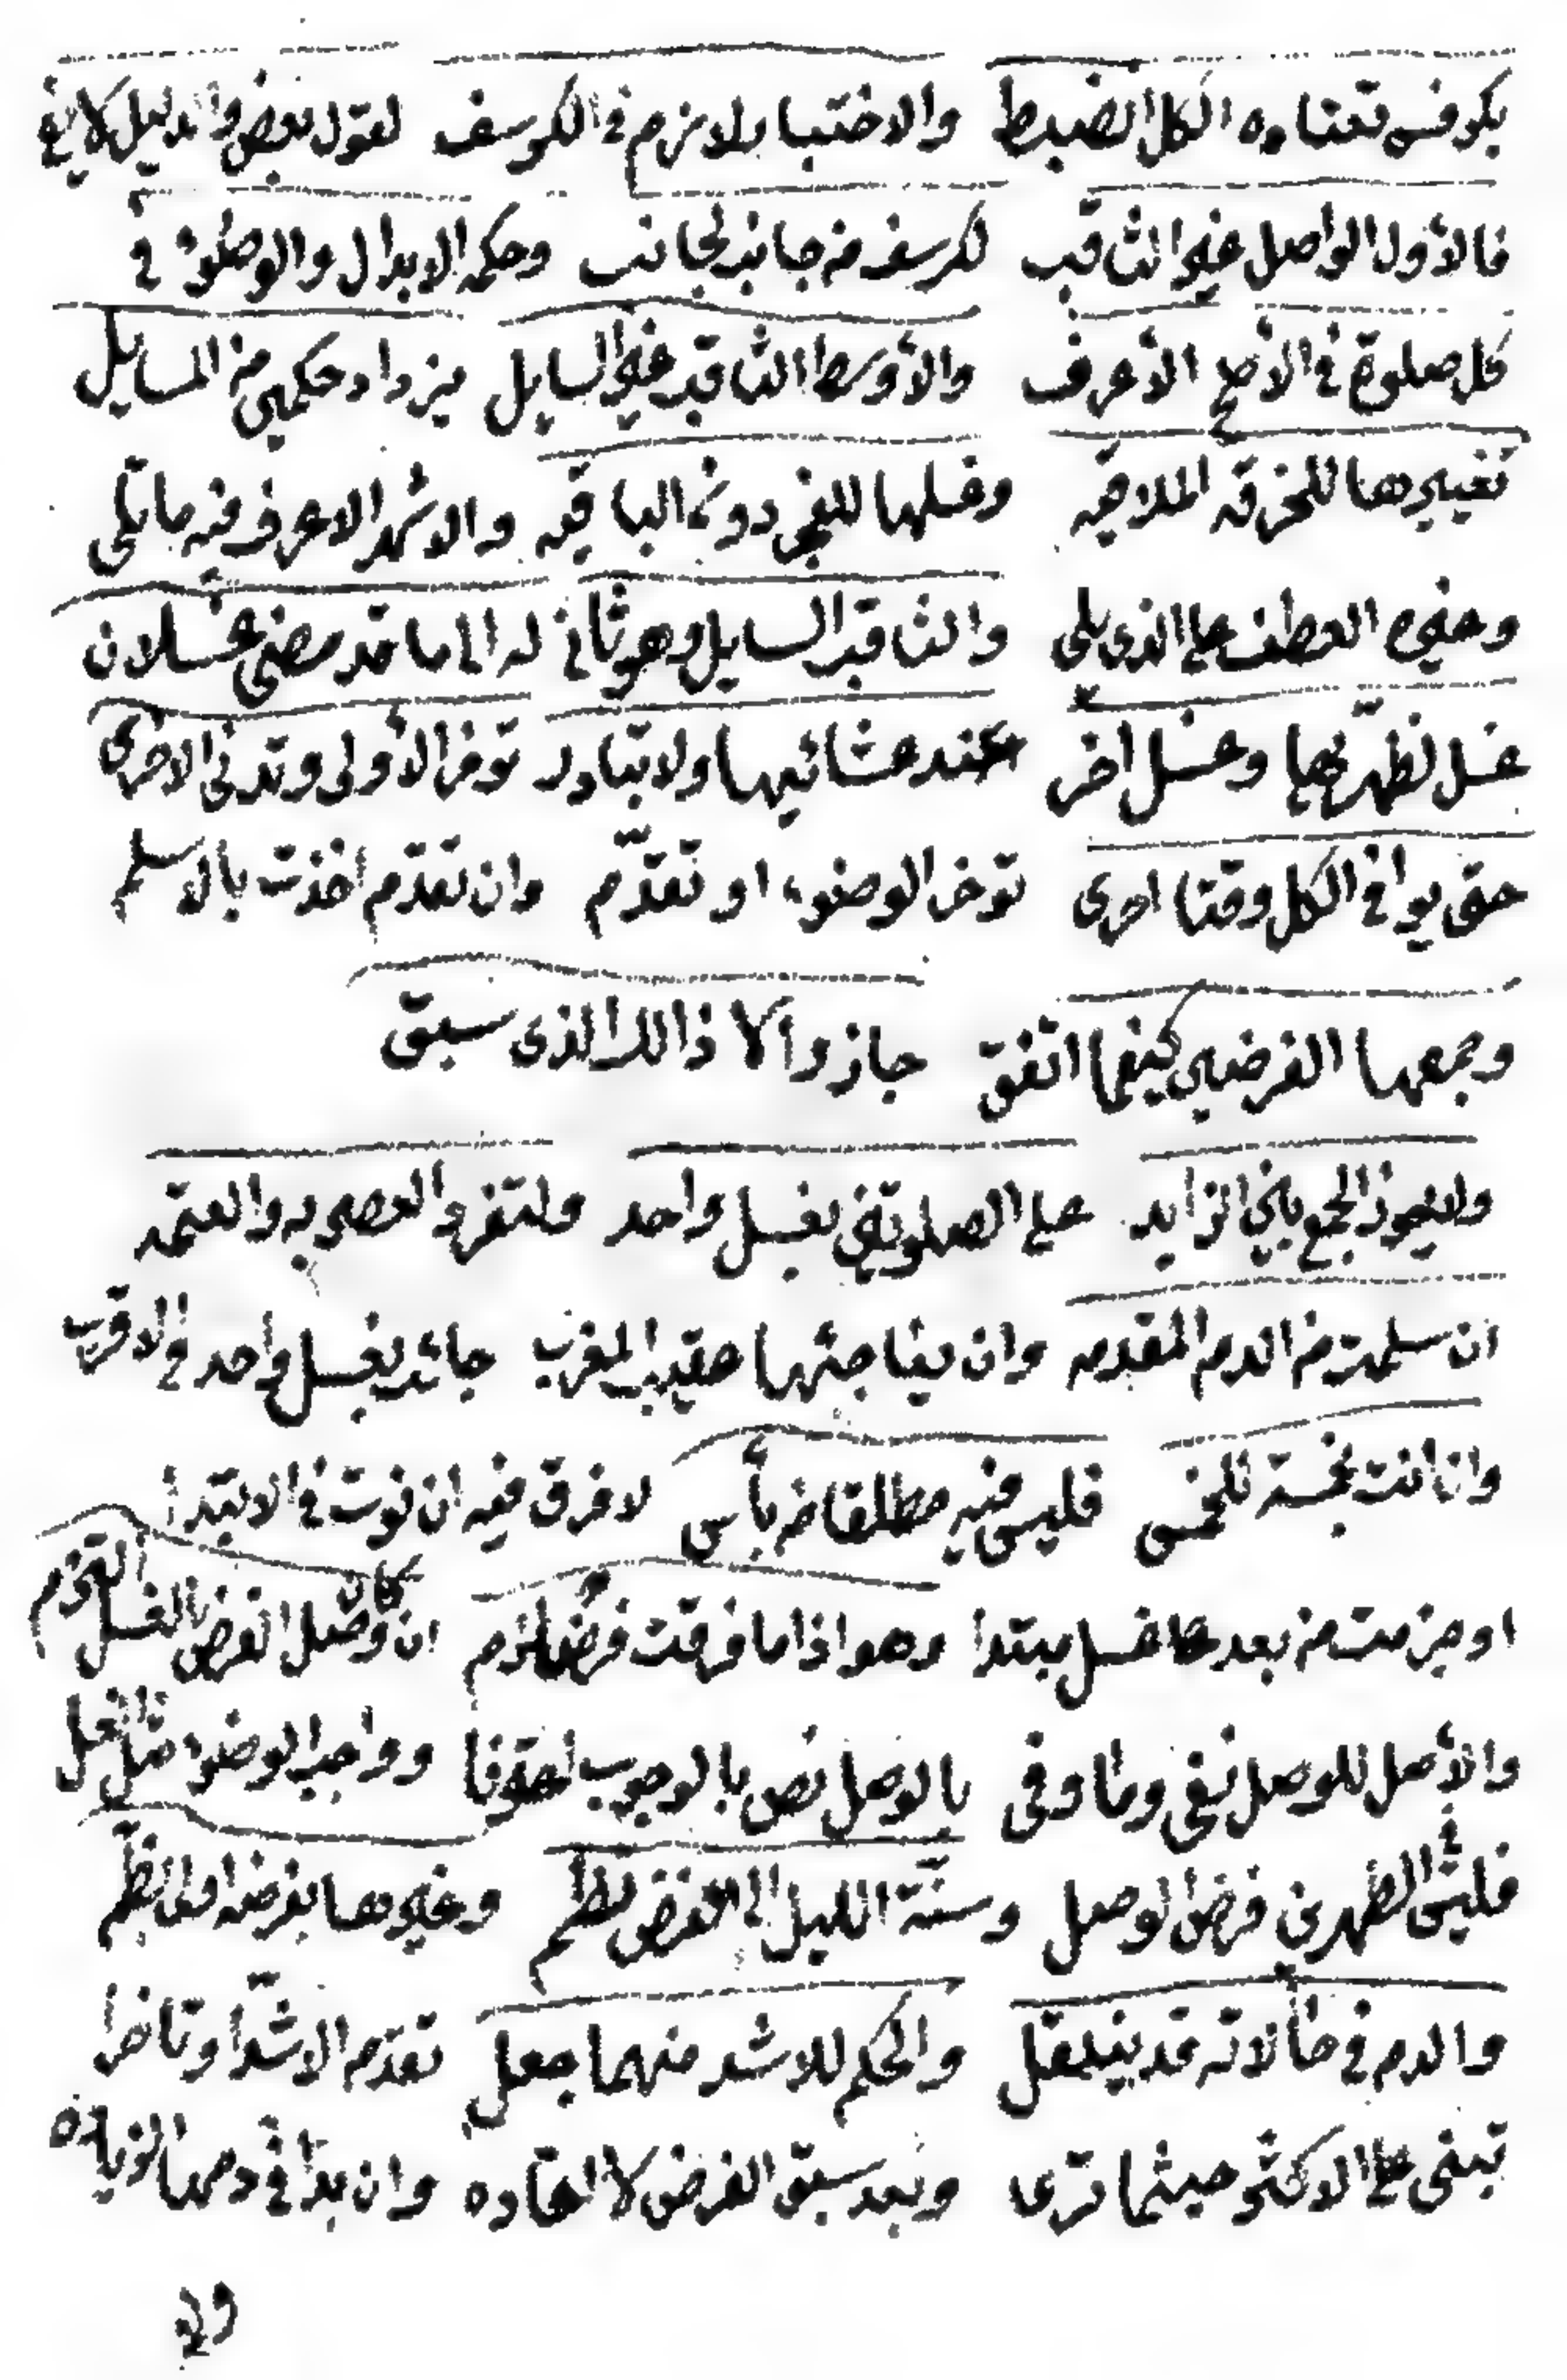 بكرسف تعتاده الكل الضبط والاختبار لازم في الكرسف لقول بعض والدليل لا يفي
فالأول الواصل غير الثاقب لكرسف من جانب لجانب وحكمه الابدال والوضوء في
كل صلوة في الأصح الأعرف والأوسط الثاقب غير السايل يزداد حكمين من المسايل
تغييرها للخرقة الملاقيه وغسلها للفجر دون الباقيه والاشهر الاعرف فيه ما تلى
وغيره العطف على الذي يلى والثاقب السايل وهو ثاني له الى ما قد مضى غسلان
غسل لظهريها وغسل اخر عند عشائيها ولا تبادر توخر الأولى وتدني الاخرى
حتى يوافي الكل وقتا احرى توخر الوضوء او تقدّم وان تقدّم اخذت بالاسلم
وجمعها الفرضين كيفما اتفق جاز والا ذالك الذي سبق
ولايجوز الجمع بين الزايد على الصلوتين بغسل واحد ولتفرد العصر به والعتمه
ان سلمت من الدم المقدمه وان يفاجئها عقيب المغرب جائز بغسل واحد في الاقرب
وان اتت بخمسة للخمس فليس فيه مطلقا من بأس لا فرق فيه ان نوت في الابتدأ
او عزمت من بعد غسل مبتدأ وهو اذا ما فرقت فرض لزم ان كان وصل الفرض بالغسل التزم
والأصل للوصل نفى وما وفى بالوصل نص بالوجوب وواجب الوضوء مثل الغسل
في الظهرين فرض الوصل وسنّة الليل الى الفرض تضم وغيرها بفرضه
والدم في حالاته قد ينتقل والحكم للاشد منهما جعل تقدّم الاشدّ او تاخرا
تبنى على الاكثر حيثما ترى وبعد سبق الفرض لا اعاده وان بدا في دمها الزياده